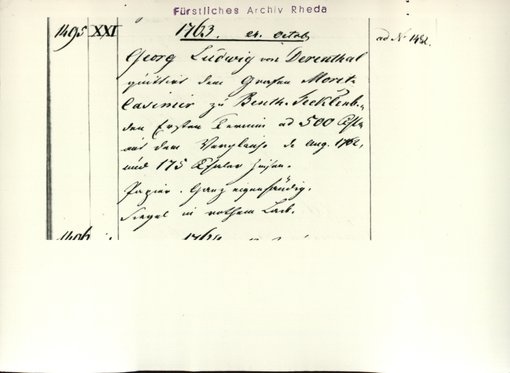 Fürstliches Archiv Rheda
1495 XXI 1763. 24. Octob. ad N. 1482.
Georg Ludwig von Derenthal
quittirt dem Grafen Moritz
Casimir zu Benth. Tecklenb.
den Ersten Termin ad 500 Rthlr
aus dem Vergleiche de Aug. 1762,
und 175 Thaler Zinsen.
Papier. Ganz eigenhändig.
Siegel in rothem Lack.
1496